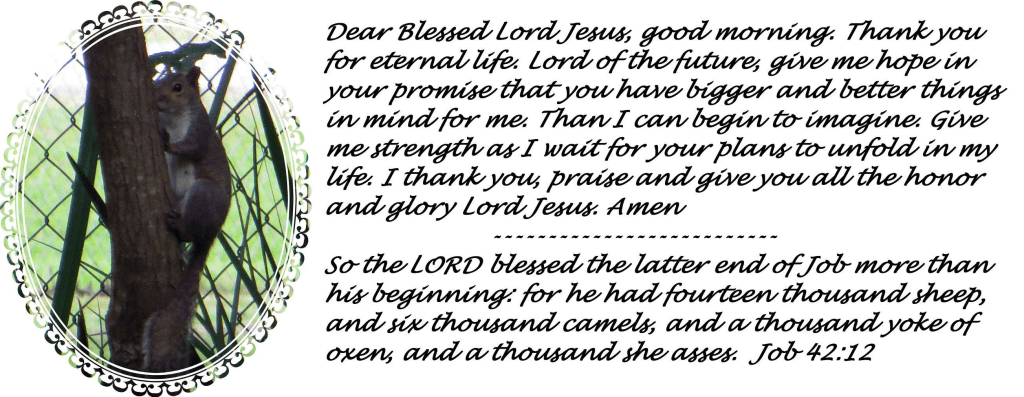 Dear Blessed Lord Jesus, good morning. Thank you
for eternal life. Lord of the future, give me hope in
your promise that you have bigger and better things
in mind for me. Than I can begin to imagine. Give
me strength as I wait for your plans to unfold in my
life. I thank you, praise and give you all the honor
and glory Lord Jesus. Amen
--------------------------
So the LORD blessed the latter end of Job more than
his beginning: for he had fourteen thousand sheep,
and six thousand camels, and a thousand yoke of
oxen, and a thousand she asses. Job 42:12